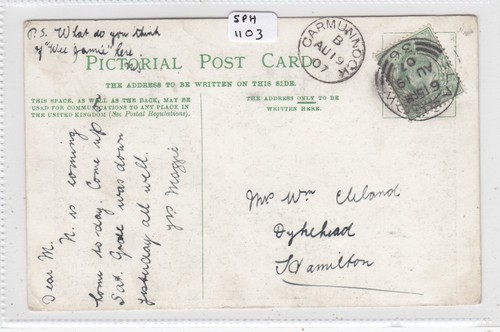 P.S. What do you think
of "Wee Jamie" here.
SPH
1103
CARMUNNOCK
B
AU 19
07
PICTORIAL POST CARD.
THE ADDRESS TO BE WRITTEN ON THIS SIDE.
THIS SPACE, AS WELL AS THE BACK, MAY BE
USED FOR COMMUNICATIONS TO ANY PLACE IN
THE UNITED KINGDOM (See Postal Regulations).
THE ADDRESS ONLY TO BE
WRITTEN HERE.
Dear M.
N. is coming
home to-day. Come up
Sat. was down
yesterday all well.
yrs Maggie
Mrs Wm Cleland
Dykehead
Hamilton